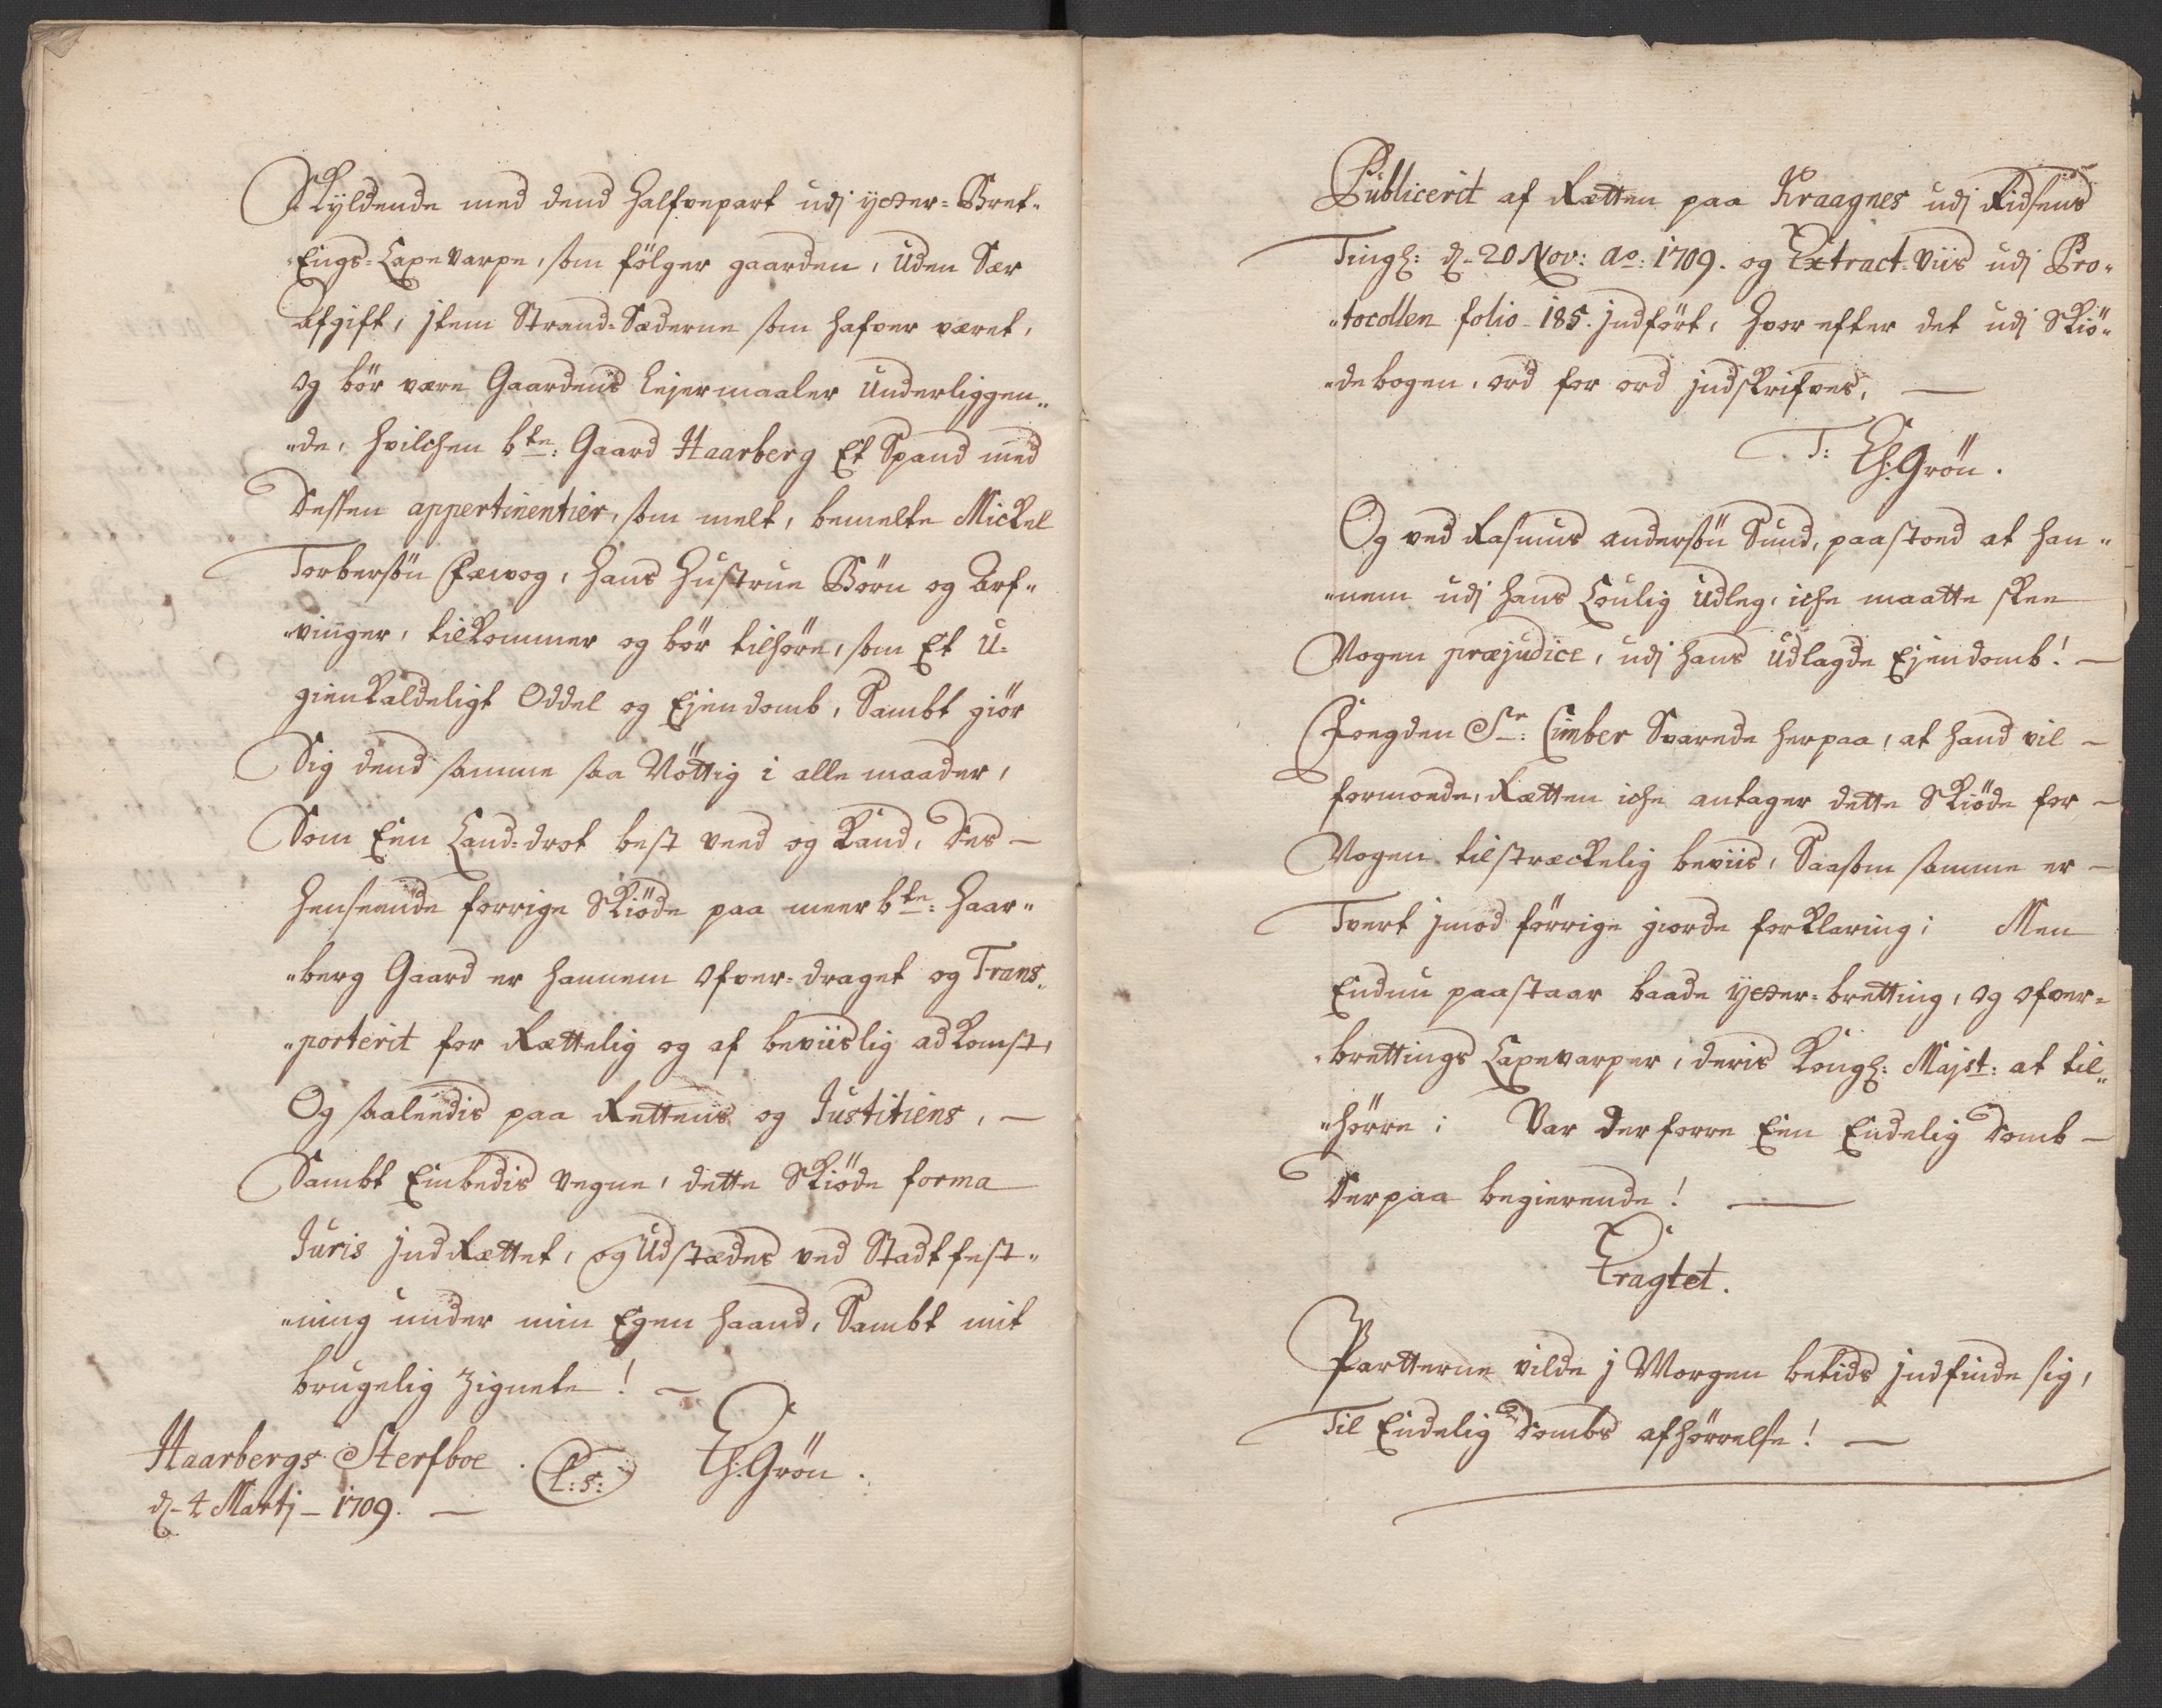 Skyldende med dend halfvepart udj ytter-Bret-
Engs-Laxevarpe, som fölger gaarden, uden Sær
Afgift, jtem Strand-Sæderne som hafver været,
og bör være Gaardens Lejermaaler underliggen„
„de, hvilchen bte: Gaard Haarberg Et Spand med
Dessen appertinentier, som melt, bemelte Mickel
Torbersön Fævog, hans Hustrue Börn og Arf„
„vinger, tilkommer og bör tilhöre, som Et U-
gienkaldeligt Oddel og Ejendomb, Sambt giör
Sig dend samme saa Nöttig i alle maader,
Som Een Land-drot best veed og Kand, Des —
henseende forrige Skiöde paa meerbte: Haar„
„berg Gaard er hannem ofver-draget og Trans„
„porterit for Rættelig og af beviislig adkomst,
Og saalédis paa Rettens og Justitiens, —
Sambt Embedis vegne, dette Skiöde forma
Juris jndRættet, og Udstædes ved Stadtfest„
„ning under min Egen haand, Sambt mit
brugelig Zignete! —
Haarbergs Sterfboe. L:S: Ch:Grön.
d. 4 Martj – 1709. —
Publicerit af Rætten paa Kraagnes udj Ridsens
Tingh: d. 20 Nov: Ao: 1709. og Extract-viis udj Pro„
„tocollen folio 185. jndfört, hvor efter det udj Skiö„
„debogen, ord for ord jndskrifves, —
T: Ch:Grön.
Og ved Rasmus andersön Sund, paastoed at han„
„nem udj hans Loulig Udleg, iche maatte skee
Nogen præjudice, udj hans Udlagde Ejendomb! —
Foegden Sr: Cimber Svarede herpaa, at hand vil —
formoede, Rætten iche antager dette Skiöde for —
Nogen tilstræckelig beviis, Saasom samme er —
Tvert jmod förrige giorde forklaring; Men
Endnu paastaar baade ytter-bretting, og ofver-
brettings Laxevarper, deris Kongh: Majst: at til„
„hörre; Var derforre Een Endelig Domb —
Derpaa begierende! —
Eragtet.
Partterne vilde j Morgen betids jndfinde sig,
Til Endelig Dombs afhörrelse! —